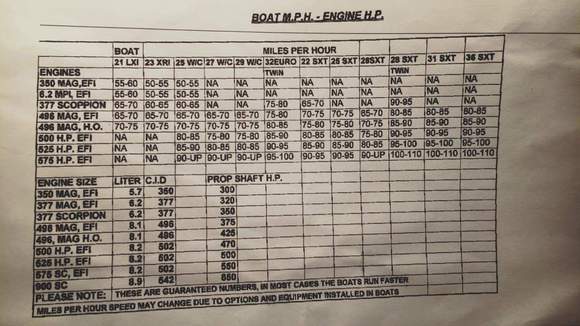 BOAT M.P.H. - ENGINE H.P.
BOAT MILES PER HOUR
21 LXI 23 XRI 25 W/C 27 W/C 29 W/C 32EURO 22 SXT 25 SXT 28SXT 28 SXT 31 SXT 36 SXT
ENGINES TWIN TWIN
350 MAG,EFI 55-60 50-55 50-55 NA NA NA NA NA NA NA NA NA
6.2 MPI, EFI 55-60 50-55 50-55 NA NA NA NA NA NA NA NA NA
377 SCOPPION 65-70 60-65 60-65 NA NA 75-80 65-70 NA NA 90-95 NA NA
496 MAG, EFI 65-70 65-70 65-70 65-70 65-70 75-80 70-75 70-75 65-70 80-85 80-85 80-85
496 MAG, H.O. 70-75 70-75 70-75 70-75 70-75 80-85 75-80 75-80 70-75 85-90 85-90 85-90
500 H.P. EFI NA NA 80-85 75-80 75-80 85-90 80-85 80-85 75-80 90-95 90-95 90-95
525 H.P. EFI NA NA 85-90 80-85 80-85 90-95 85-90 85-90 80-85 95-100 95-100 95-100
575 H.P. EFI NA NA 90-UP 90-UP 90-UP 95-100 90-95 90-95 90-UP 100-110 100-110 100-110
ENGINE SIZE LITER C.I.D PROP SHAFT H.P.
350 MAG, EFI 5.7 350 300
377 MAG, EFI 6.2 377 320
377 SCORPION 6.2 377 350
496 MAG, EFI 8.1 496 375
496, MAG H.O. 8.1 496 425
500 H.P. EFI 8.2 502 470
525 H.P. EFI 8.2 502 500
575 SC, EFI 8.2 502 550
900 SC 8.9 542 650
PLEASE NOTE: THESE ARE GUARANTEED NUMBERS, IN MOST CASES THE BOATS RUN FASTER
MILES PER HOUR SPEED MAY CHANGE DUE TO OPTIONS AND EQUIPMENT INSTALLED IN BOATS